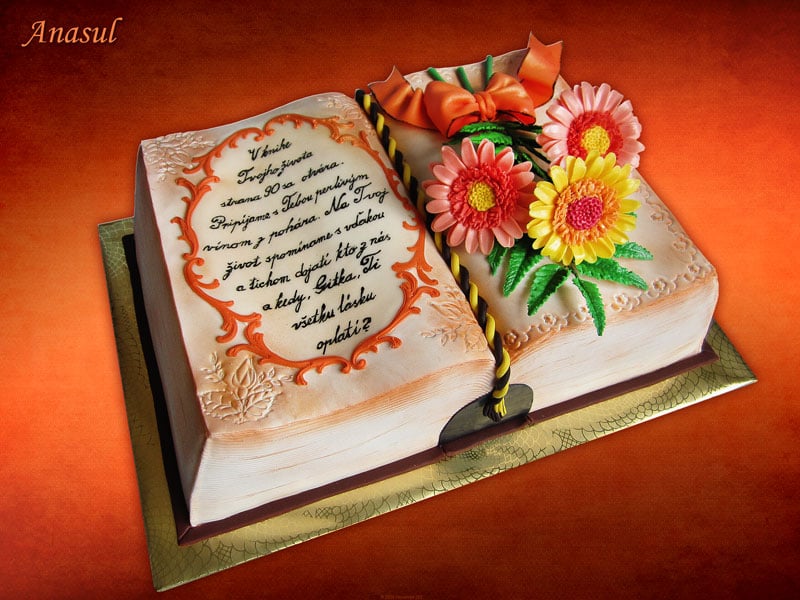 Anasul
V knihe
Tvojho života
strana 90 sa otvára.
Pripíjame s Tebou perlivým
vínom z pohára. Na Tvoj
život spomíname s vďakou
a tichom dojatí kto z nás
a kedy, Gitka, Ti
všetku lásku
oplatí?